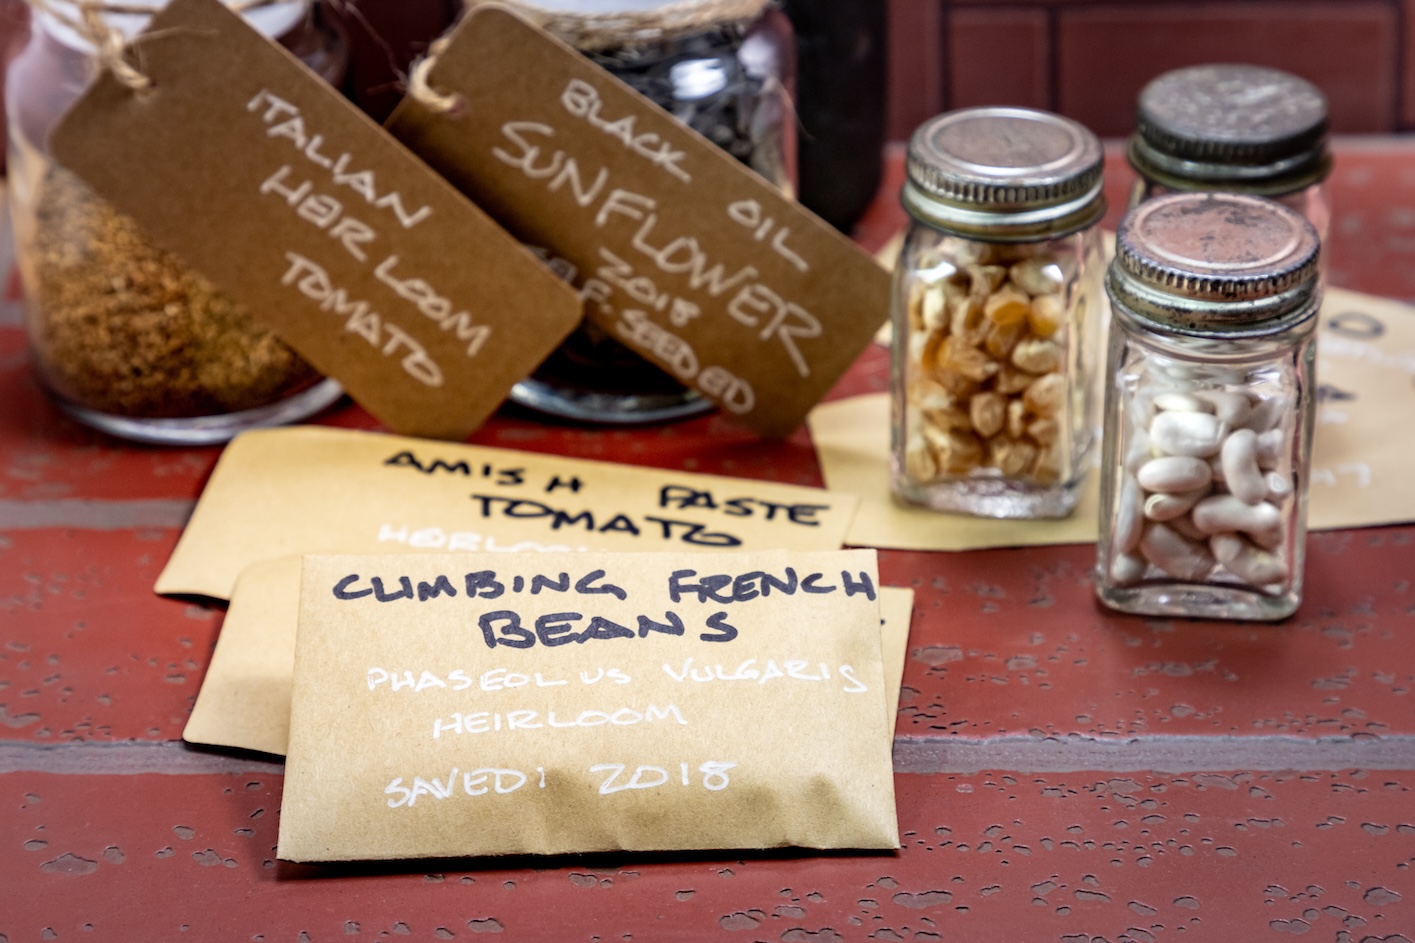 ITALIAN
HEIRLOOM
TOMATO
BLACK OIL
SUNFLOWER
2018
SEEDED
AMISH PASTE
TOMATO
CLIMBING FRENCH
BEANS
PHASEOLUS VULGARIS
HEIRLOOM
SAVED: 2018